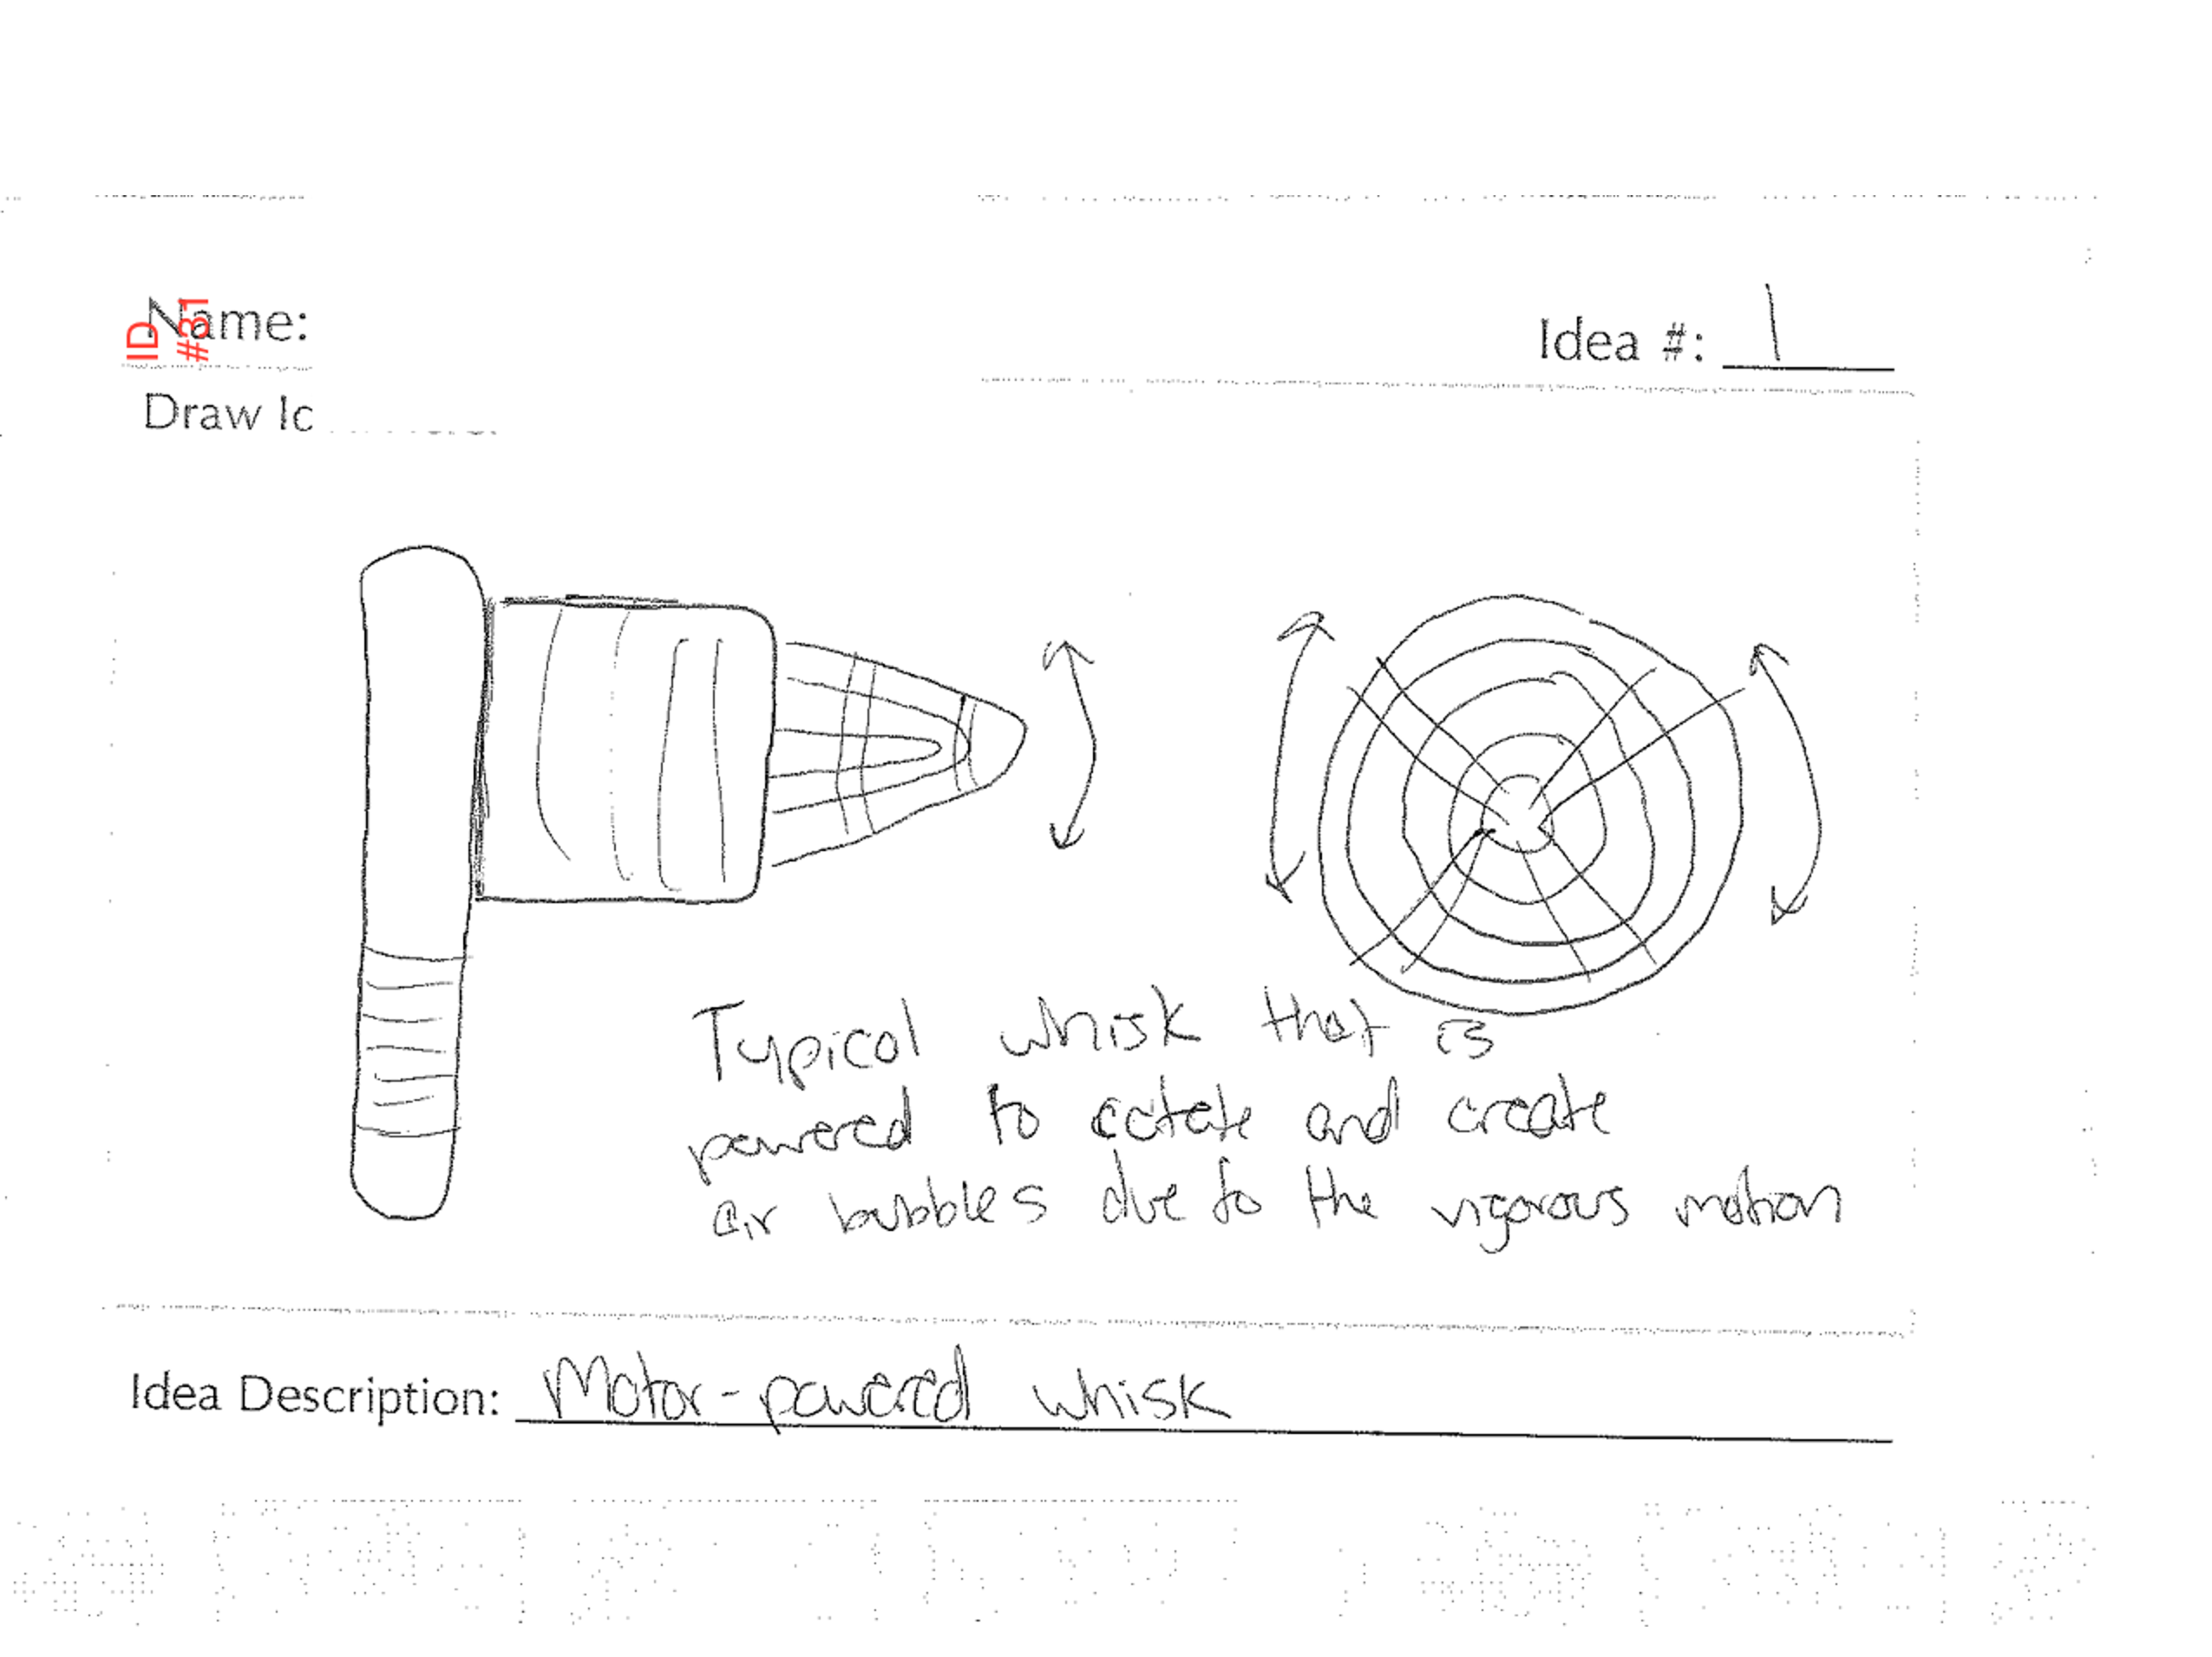 Name:
ID
#31
Idea #: 1
Draw Ic
Typical whisk that is
powered to rotate and create
air bubbles due to the vigorous motion
Idea Description: Motor-powered whisk